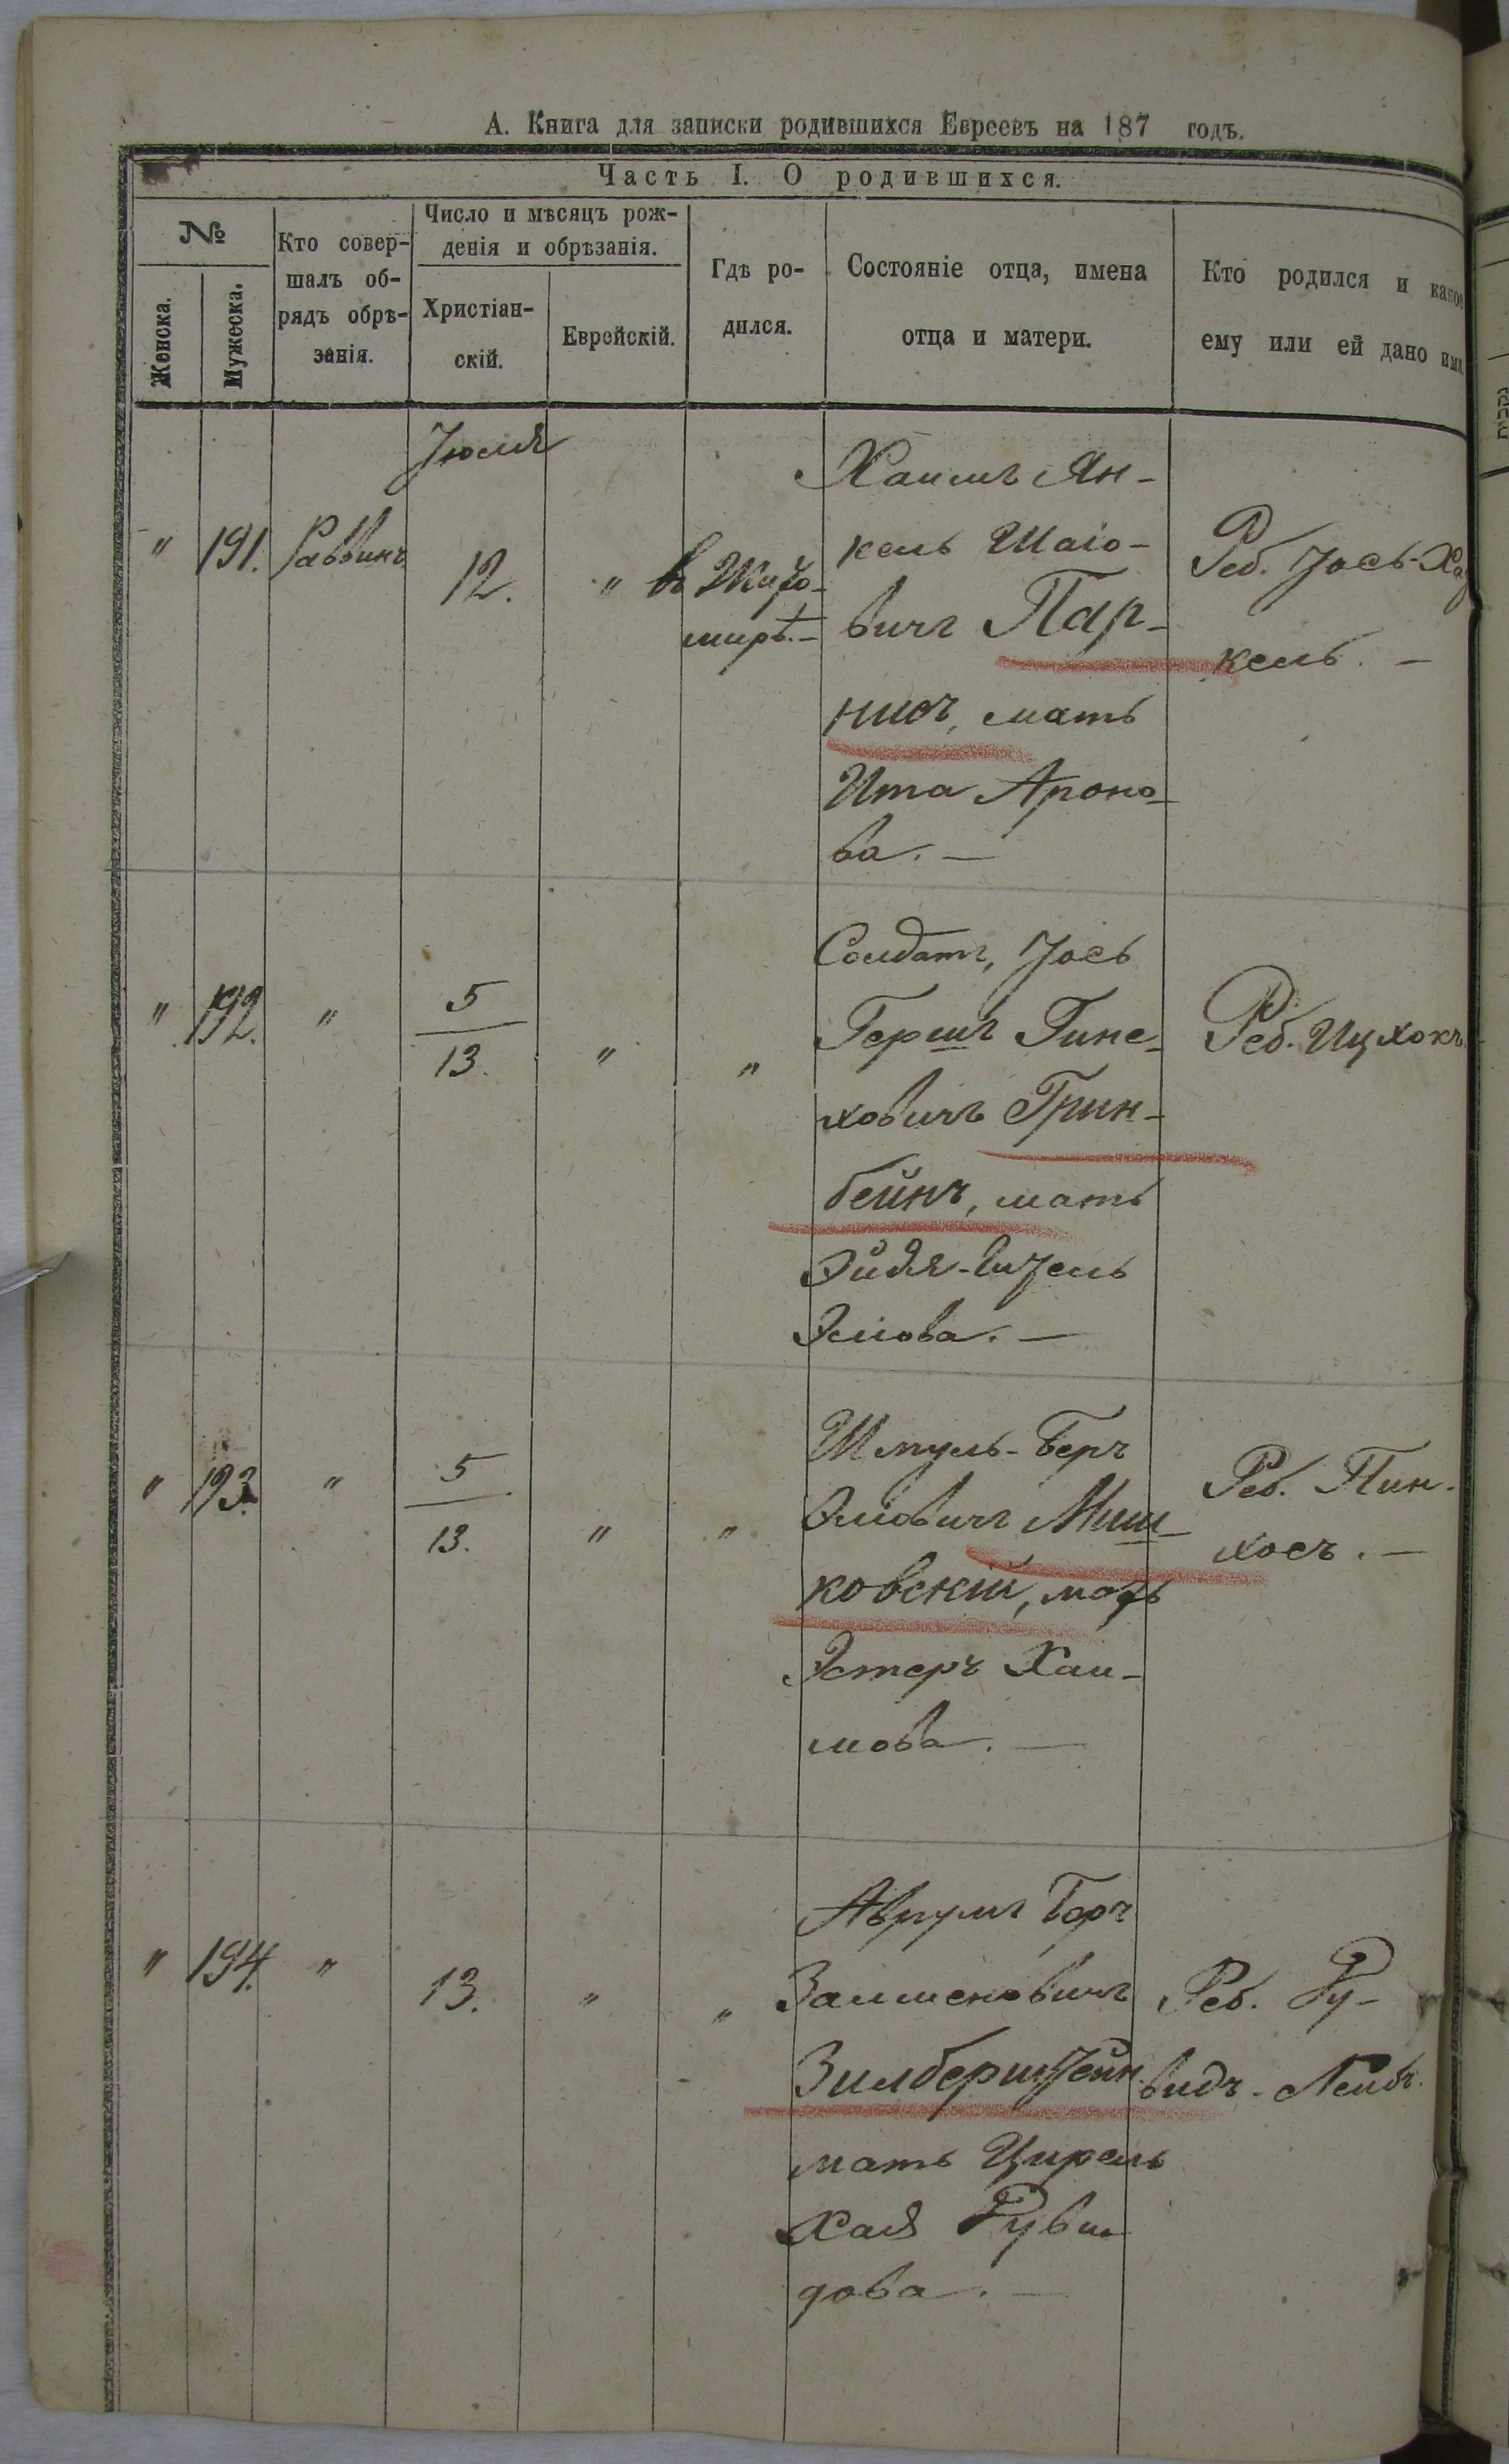 А. Книга для записки родившихся Евреевъ на 187 годъ.
Часть I. О родившихся.
№
Женска.
Мужеска.
Кто совер-
шалъ об-
рядъ обрѣ-
занія.
Число и мѣсяцъ рож-
денія и обрѣзанія.
Христіан-
скій.
Еврейскій.
Гдѣ ро-
дился.
Состояніе отца, имена
отца и матери.
Кто родился и какое
ему или ей дано имя
Іюля
" 191. Раввинъ 12. " в Жито-
мирѣ.-
Хаимъ Ян-
кель Шаіо-
вичъ Пар-
нисъ, мать
Ита Ароно-
ва. —
Реб. Іось-Ха
кель. —
" 192. " 5
13. " "
Солдатъ, Іось
Гершъ Пине-
ховичъ Грин-
бейнъ, мать
Эйдля-
Элиова. —
Реб. Ицхокъ
" 193. " 5
13. " "
Шмуль-Беръ
Эліовичъ Миш-
ковскій, мать
Эстеръ Хаи-
мова. —
Реб. Пин-
хосъ. —
" 194. " 13. " "
Аврумъ Беръ
Залменовичъ
Зилберштейн
мать Цирель
Хая Руви
дова. —
Реб. Ру-
видъ-Лейбъ.